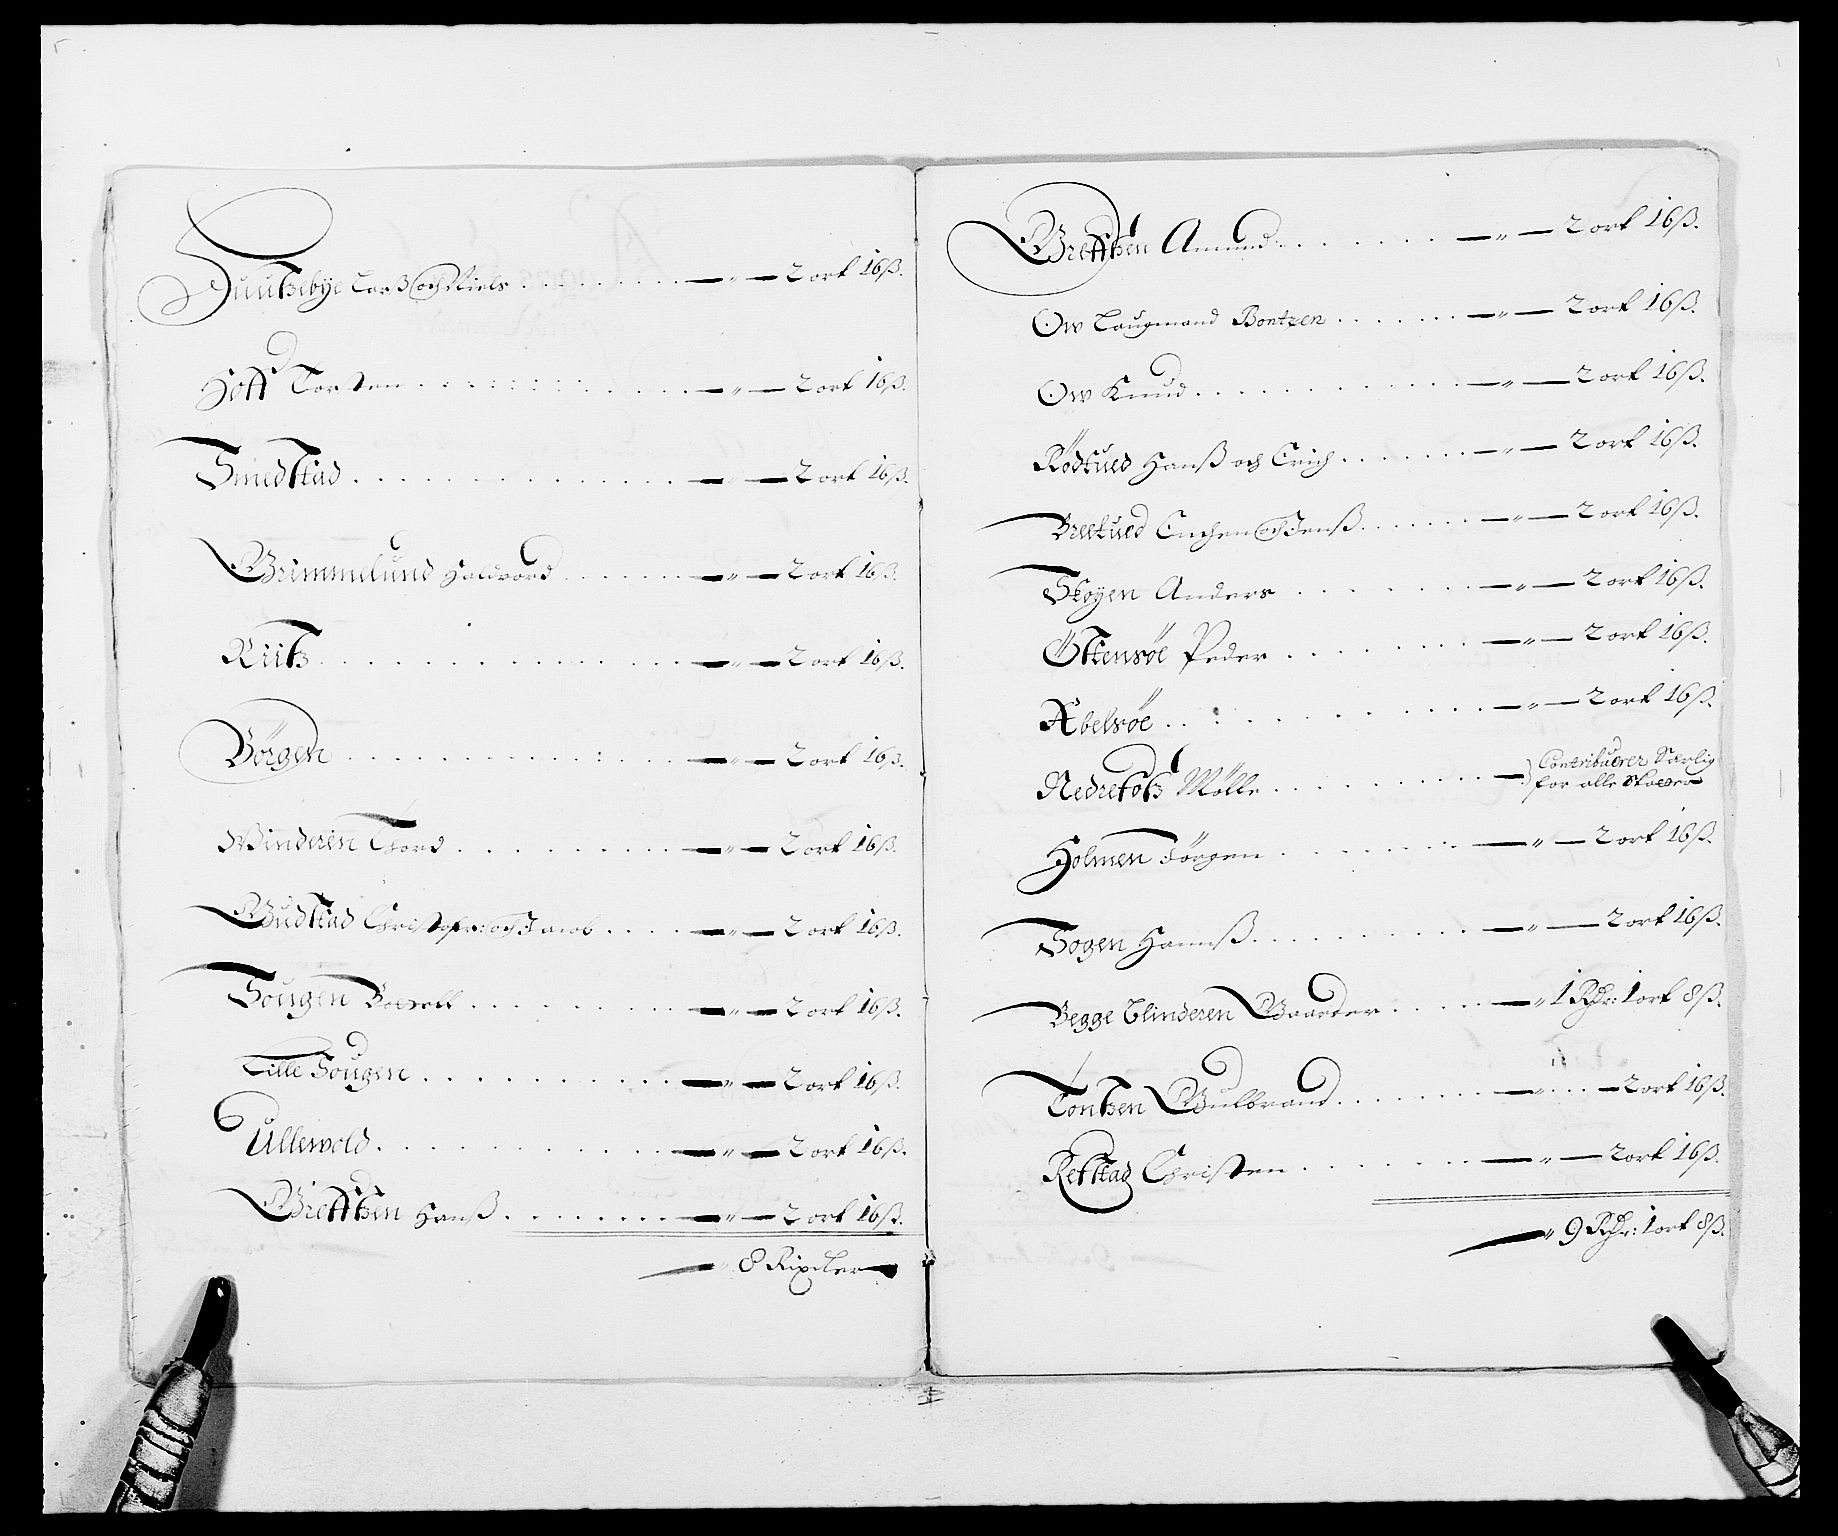 Huußebye Larß och Niels . . . . . . . — „ — 2 ort 16 ß.
Hoff Torsten . . . . . . . . . . — „ — 2 ort 16 ß.
Smedstad . . . . . . . . . . . . — „ — 2 ort 16 ß.
Grimmelund Haldvord . . . . . . — „ — 2 ort 16 ß.
Riiß . . . . . . . . . . . . . — „ — 2 ort 16 ß.
Børgen . . . . . . . . . . . . — „ — 2 ort 16 ß.
Winderen Thord . . . . . . . . — „ — 2 ort 16 ß.
Gudstad Christopher och Jacob . . . . — „ — 2 ort 16 ß.
Sougen . . . . . . . . — „ — 2 ort 16 ß.
Lille Sougen . . . . . . . . . — „ — 2 ort 16 ß.
Ullewold . . . . . . . . . . . — „ — 2 ort 16 ß.
Greffßen Hanß . . . . . . . — „ — 2 ort 16 ß.
— „ 8 Rixdler
Greffßen Amund . . . . . . . — „ — 2 ort 16 ß.
Ow Laugmand Bentzen . . . . . . — „ — 2 ort 16 ß.
Ow Knud . . . . . . . . . . — „ — 2 ort 16 ß.
Rødtued Hanß och Erich . . . . . . — „ — 2 ort 16 ß.
Bredtued Enchen och Jenß . . . . . . — „ — 2 ort 16 ß.
Skøyen Anders . . . . . . — „ — 2 ort 16 ß.
Østensøe Peder . . . . . . . — „ — 2 ort 16 ß.
Abelsøe . . . . . . . . . . — „ — 2 ort 16 ß.
Nedrefoß Mølle . . . . . . . . — } Contribuerer Særlig
for alle Skatter
Holmen Jørgen . . . . . . . . — „ — 2 ort 16 ß.
Sogen Hannß . . . . . . . . . — „ — 2 ort 16 ß.
Begge Blinderen Gaarder . . . . . — „ 1 Rdr: 1 ort 8 ß.
Tonßen Gulbrand . . . . . . . — „ . . — 2 ort 16 ß.
Refstad Christen . . . . . . . — „ — 2 ort 16 ß.
— „ 9 Rdr: 1 ort 8 ß.